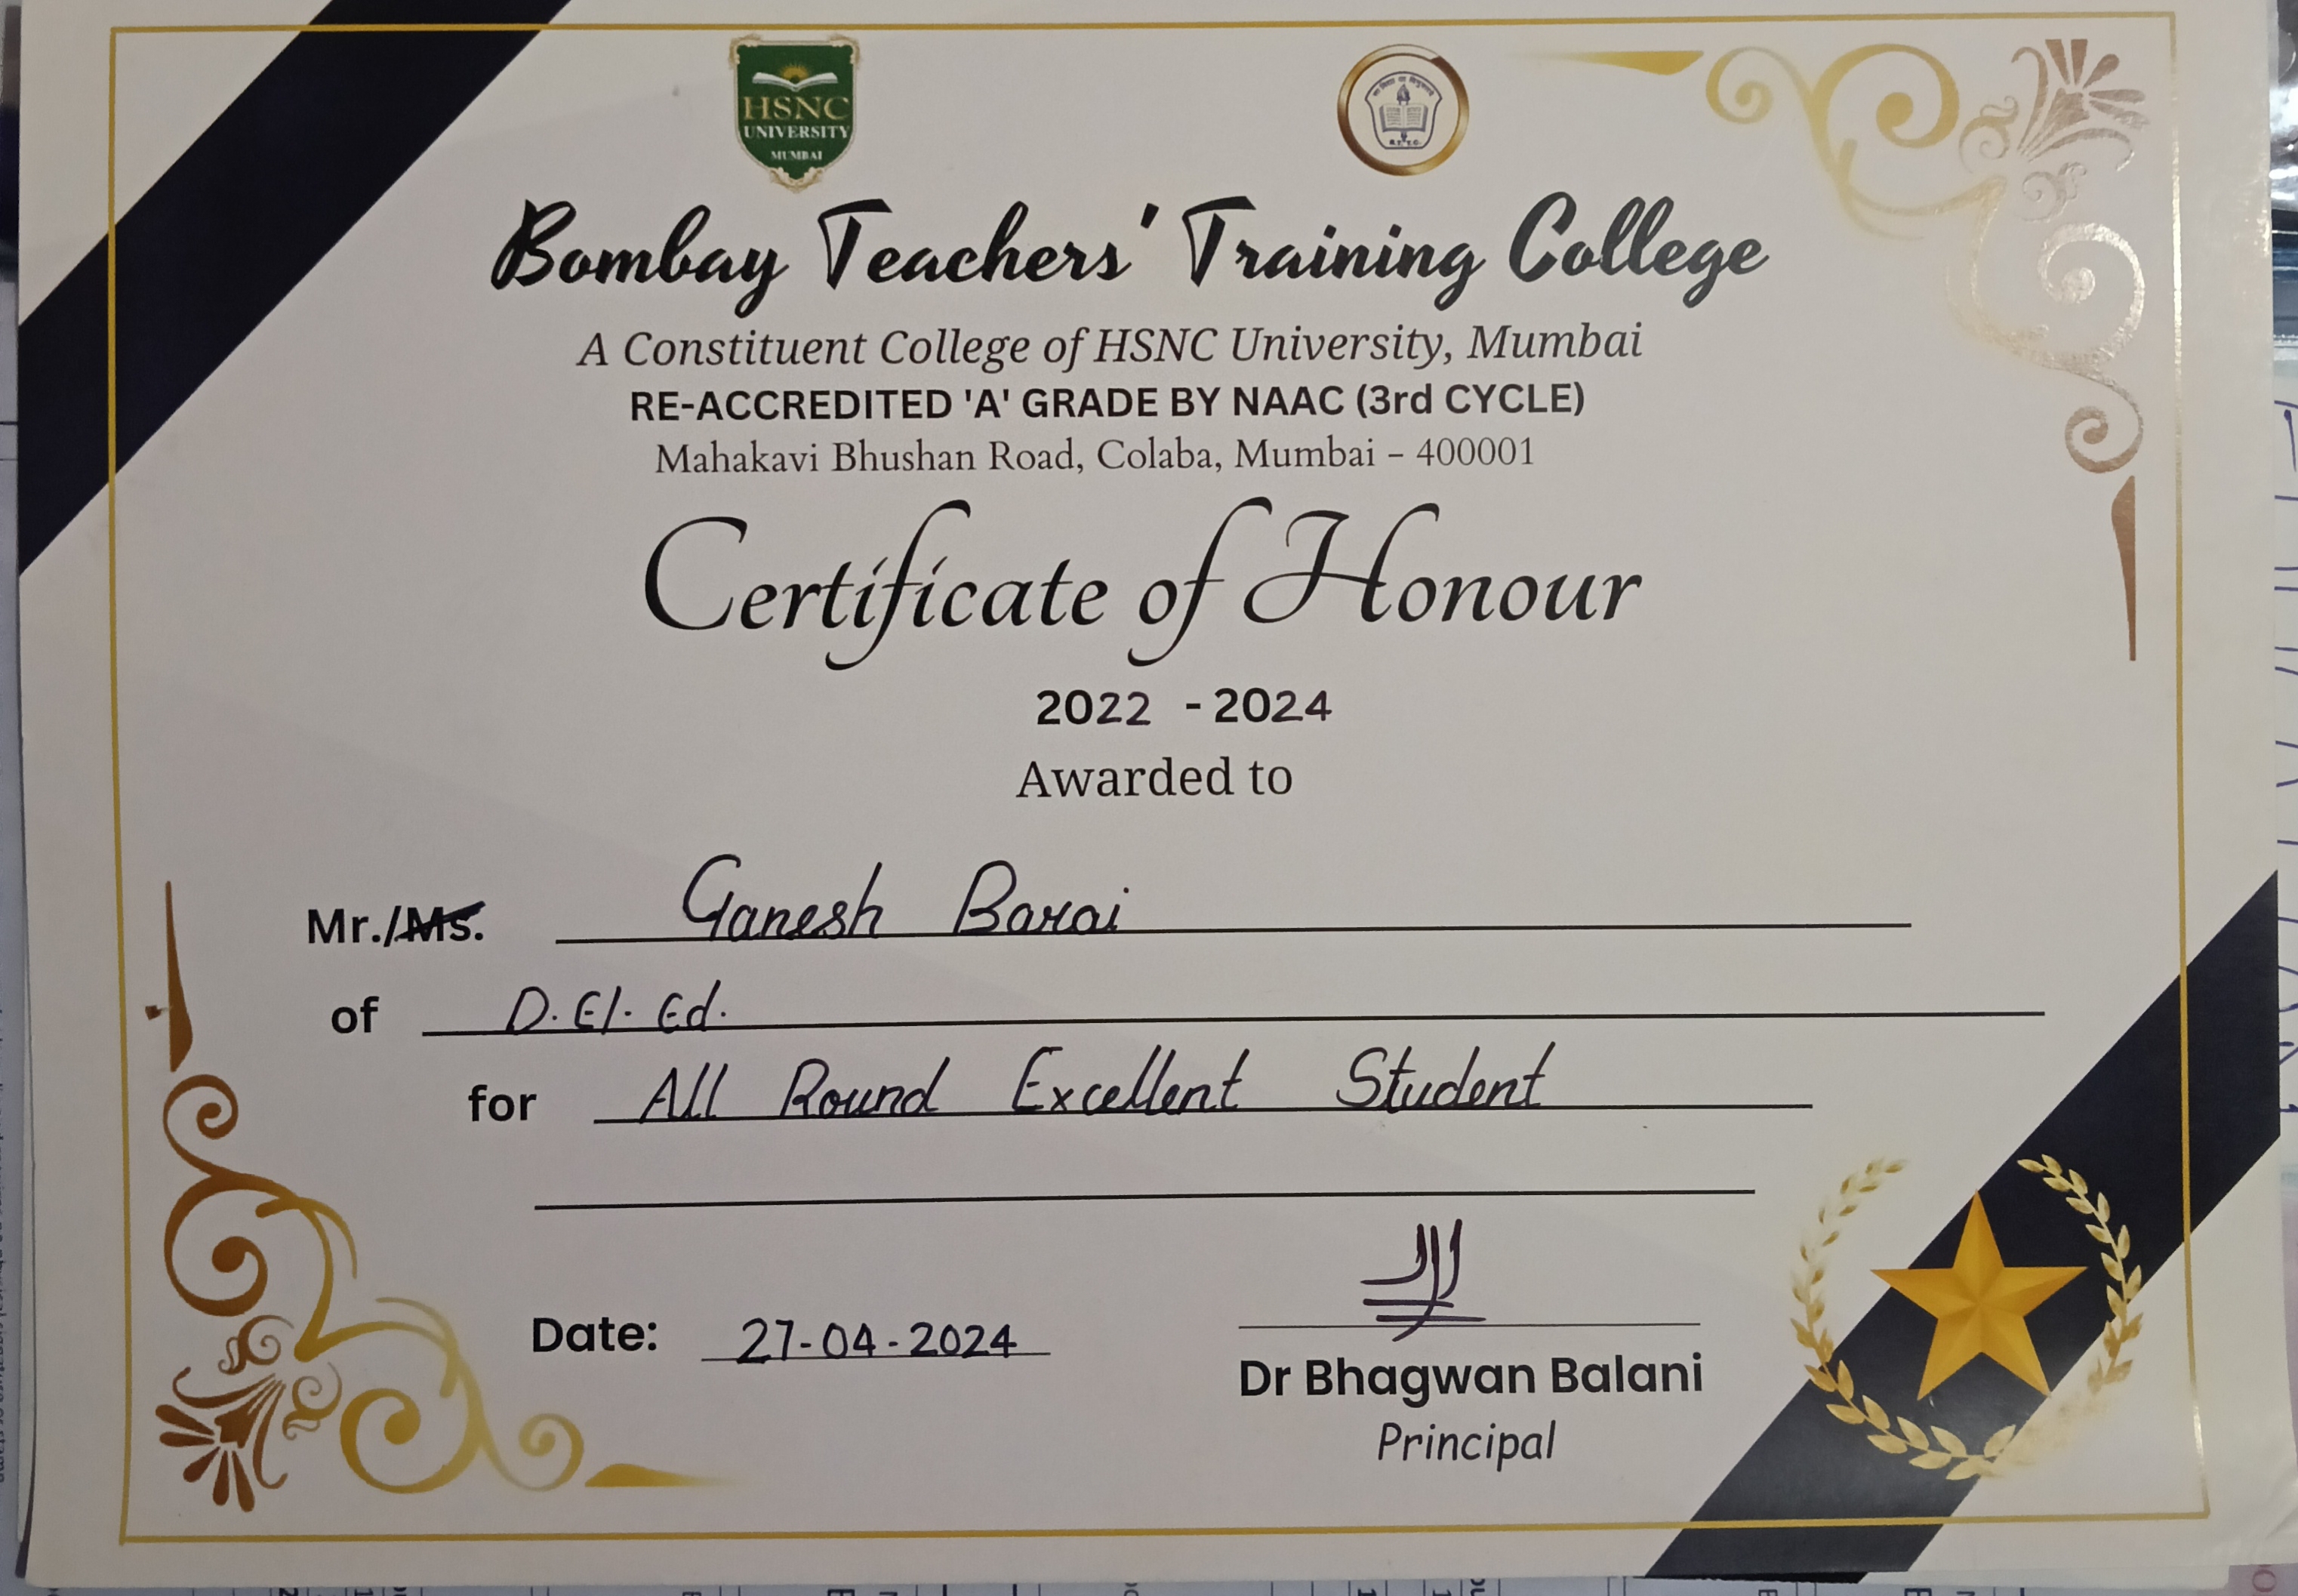 HSNC
UNIVERSITY
MUMBAI
Bombay Teachers' Training College
A Constituent College of HSNC University, Mumbai
RE-ACCREDITED 'A' GRADE BY NAAC (3rd CYCLE)
Mahakavi Bhushan Road, Colaba, Mumbai – 400001
Certificate of Honour
2022 - 2024
Awarded to
Mr./Ms. Ganesh Barai
of D. El. Ed.
for All Round Excellent Student
Date: 27-04-2024
Dr Bhagwan Balani
Principal